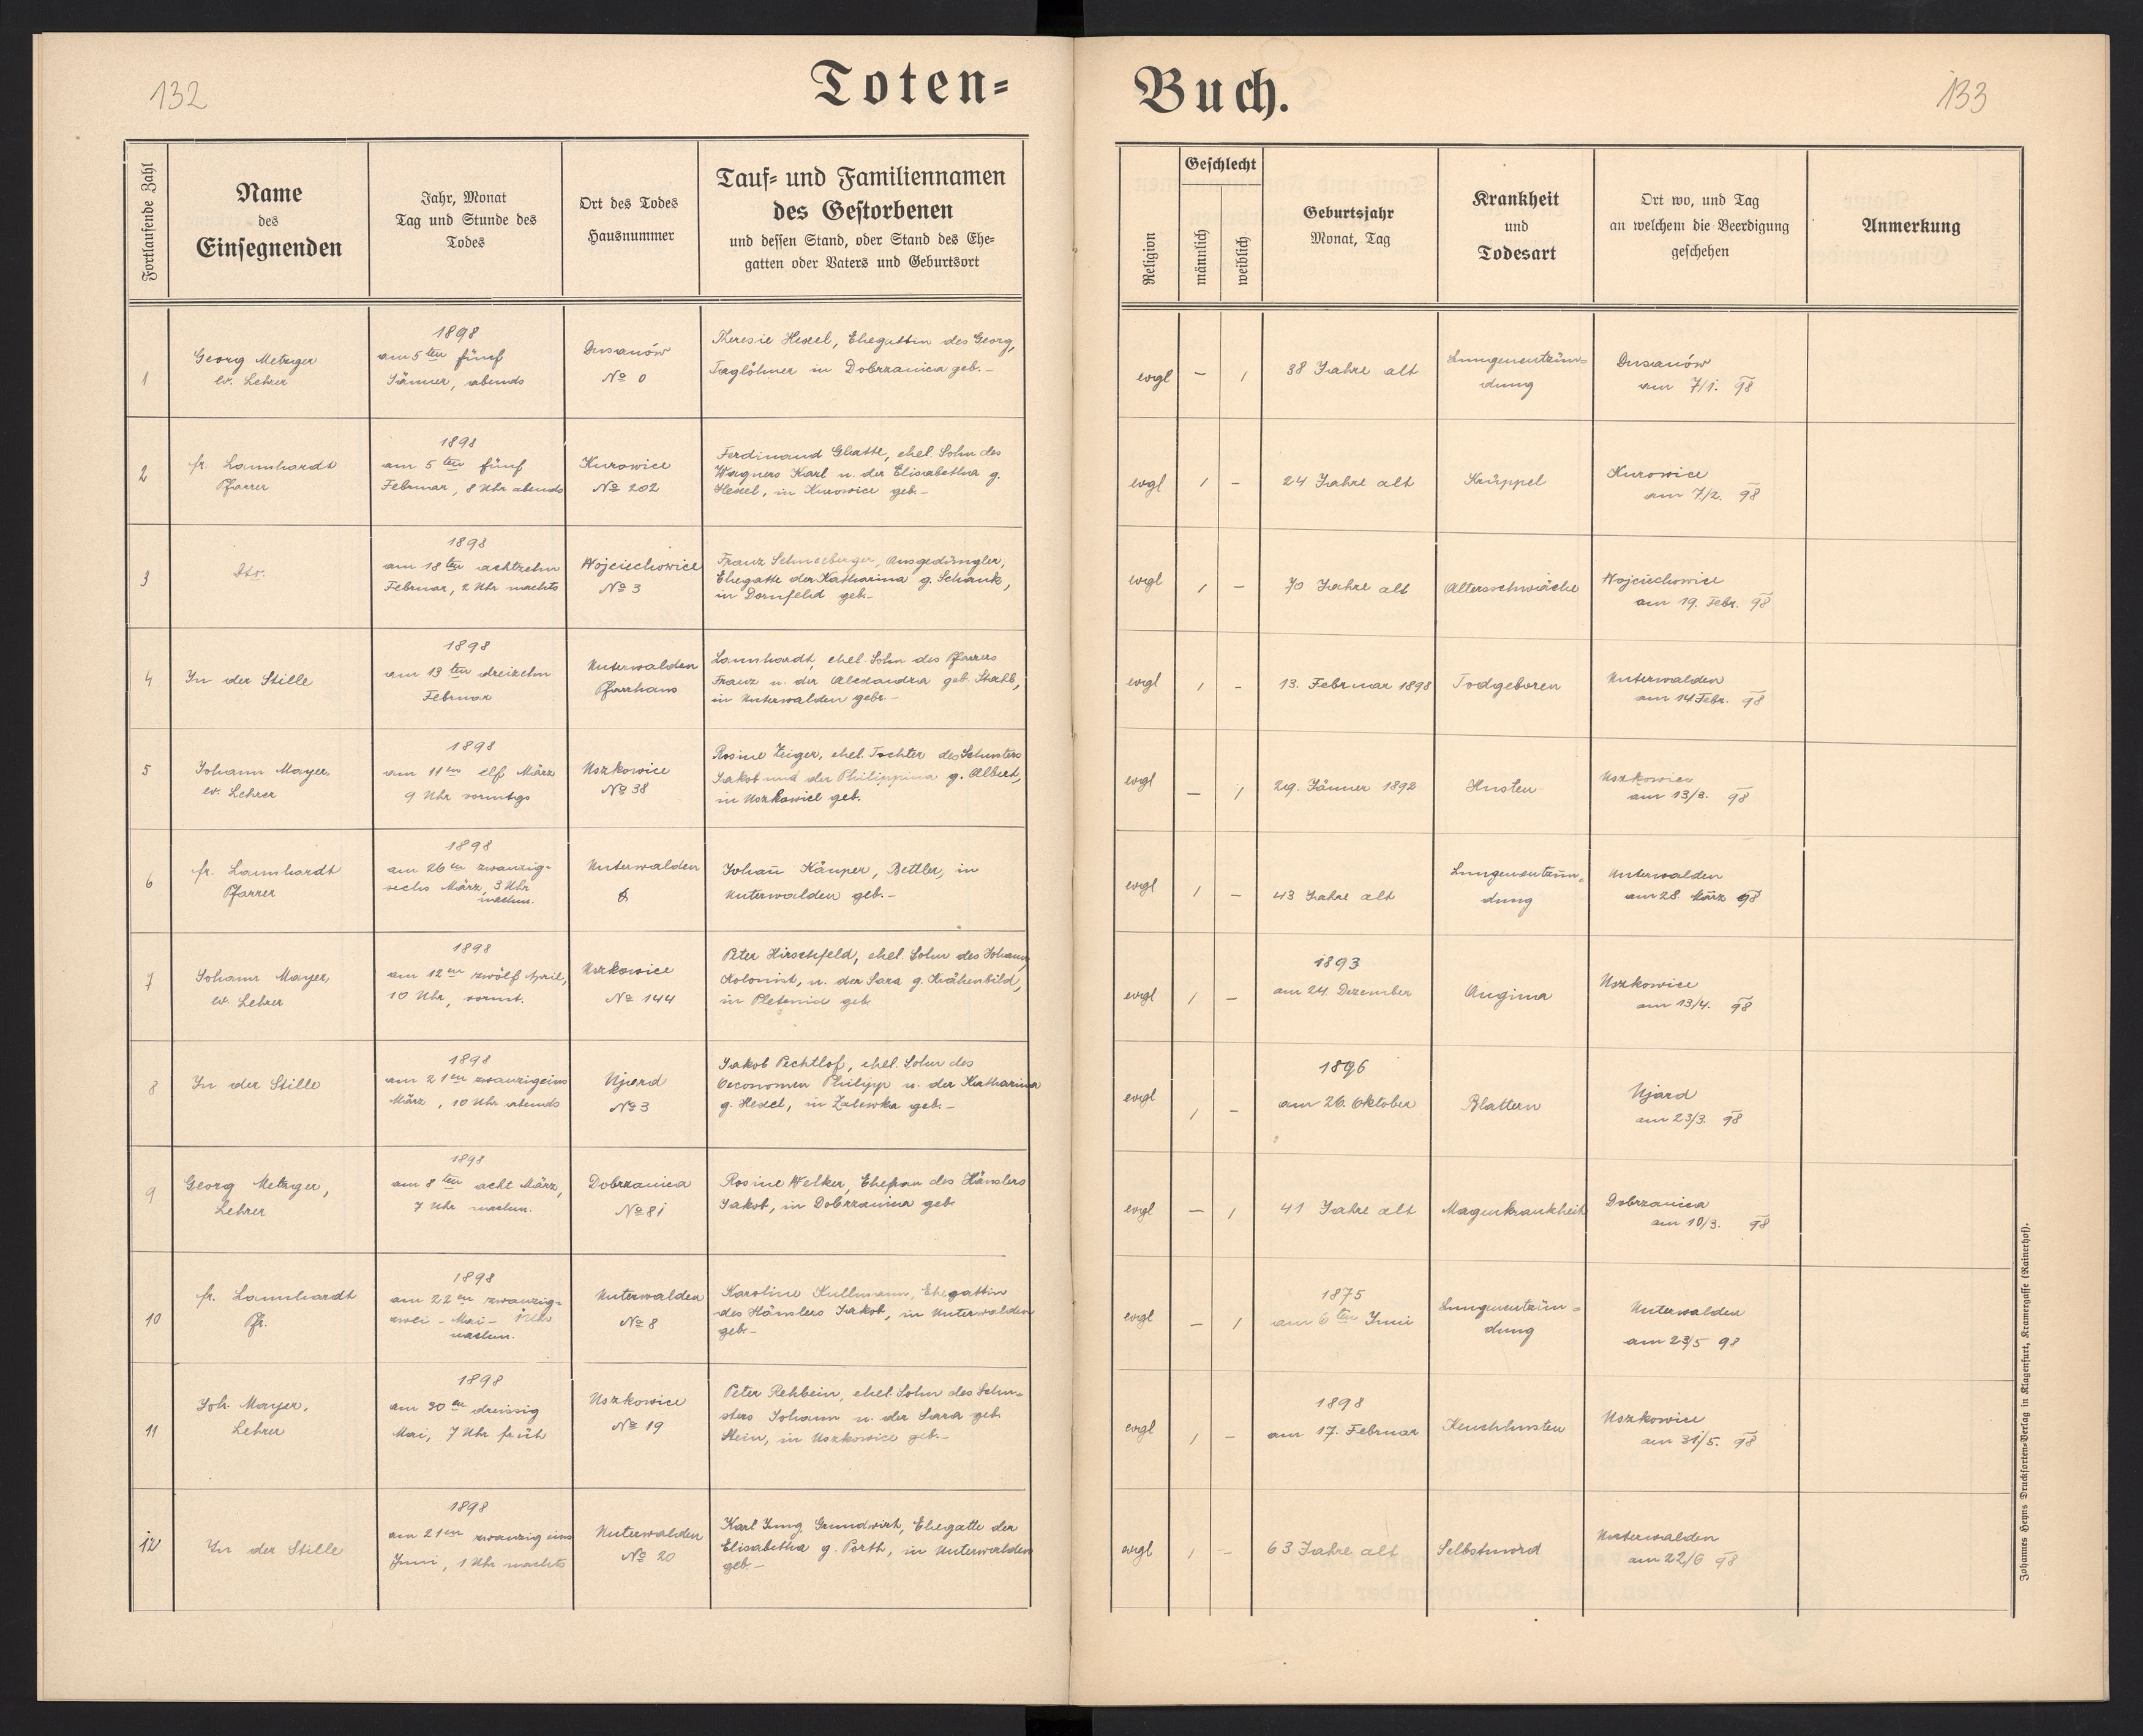 132
Toten-
Buch.
133
Fortlaufende Zahl
Name
des
Einsegnenden
Jahr, Monat
Tag und Stunde des
Todes
Ort des Todes
Hausnummer
Tauf- und Familiennamen
des Gestorbenen
und dessen Stand, oder Stand des Ehe-
gatten oder Vaters und Geburtsort
Religion
Geschlecht
männlich
weiblich
Geburtsjahr
Monat, Tag
Krankheit
und
Todesart
Ort wo, und Tag
an welchem die Beerdigung
geschehen
Anmerkung
1
Georg Metzger
ev. Lehrer
1898
am 5ten fünf
Jänner, abends
Dusanów
No 0
Theresie Hexel, Ehegattin des Georg,
Taglöhner in Dobrzanica geb.-
evgl
-
1
38 Jahre alt
Lungenentzün-
dung
Dusanów
am 7/1. 98
2
fr. Lannhardt
Pfarrer
1898
am 5ten fünf
Februar, 8 Uhr abends
Kurowice
No 202
Ferdinand Glatte, ehel. Sohn des
Wagners Karl u. der Elisabetha g.
Hexel, in Kurowice geb.-
evgl
1
-
24 Jahre alt
Krüppel
Kurowice
am 7/2. 98
3
dto.
1898
am 18ten achtzehn
Februar, 2 Uhr nachts
Wojciechowice
No 3
Franz Schneeberger, Ausgedingler,
Ehegatte der Katharina g. Schank,
in Dornfeld geb.-
evgl
1
-
70 Jahre alt
Altersschwäche
Wojciechowice
am 19. Febr. 98
4
In der Stille
1898
am 13ten dreizehn
Februar
Unterwalden
Pfarrhaus
Lannhardt, ehel. Sohn des Pfarrers
Franz u. der Alexandra geb. Stahlb,
in Unterwalden gebr.-
evgl
1
-
13. Februar 1898
Todgeboren
Unterwalden
am 14 Febr. 98
5
Johann Mayer,
ev. Lehrer
1898
am 11en elf März
9 Uhr vormtgs
Uszkowice
No 38
Rosine Zeiger, ehel. Tochter des Schusters
Jakob und der Philippina g. Albert,
in Uszkowice geb.
evgl
-
1
29. Jänner 1892
Husten
Uszkowice
am 13/3. 98
6
fr. Lannhardt
Pfarrer
1898
am 26en zwanzig-
sechs März, 3 Uhr
nachm.
Unterwalden
Johann Kämper, Bettler, in
Unterwalden geb.-
evgl
1
-
43 Jahre alt
Lungenentzün-
dung
Unterwalden
am 28. März 98
7
Johann Mayer,
ev. Lehrer
1898
am 12en zwölf April,
10 Uhr, vormt.
Uszkowice
No 144
Peter Hirschfeld, ehel. Sohn des Johann,
Kolonist, u. der Sara g. Krähenbild,
in Pletenice geb.
evgl
1
-
1893
am 24. Dezember
Angina
Uszkowice
am 13/4. 98
8
In der Stille
1898
am 21en zwanzigeins
März, 10 Uhr abends
Ujard
No 3
Jakob Pechtlof, ehel. Sohn des
Oeconomen Philipp u. der Katharina
g. Hexel, in Zalewka geb.-
evgl
1
-
1896
am 26. Oktober
Blattern
Ujard
am 23/3. 98
9
Georg Metzger,
Lehrer
1898
am 8ten acht März,
7 Uhr nachm.
Dobrzanica
No 81
Rosine Welker, Ehefrau des Häuslers
Jakob, in Dobrzanica geb.
evgl
-
1
41 Jahre alt
Magenkrankheit
Dobrzanica
am 10/3. 98
10
fr. Lannhardt
Pfr.
1898
am 22en zwanzig-
zwei - Mai -
nachm.
Unterwalden
No 8
Karoline Kullmann, Ehegattin
des Häuslers Jakob, in Unterwalden
geb.-
evgl
-
1
1875
am 6ten Juni
Lungenentzün-
dung
Unterwalden
am 23/5 98
11
Joh. Mayer,
Lehrer
1898
am 30en dreissig
Mai, 7 Uhr früh
Uszkowice
No 19
Peter Rehbein, ehel. Sohn des Schu-
sters Johann u. der Sara geb.
Stein, in Uszkowice geb.-
evgl
1
-
1898
am 17. Februar
Keuchhusten
Uszkowice
am 31/5. 98
12
In der Stille
1898
am 21en zwanzig eins
Juni, 1 Uhr nachts
Unterwalden
No 20
Karl Jung, Grundwirt, Ehegatte der
Elisabetha g. Porth, in Unterwalden
geb.-
evgl
1
-
63 Jahre alt
Selbstmord
Unterwalden
am 22/6 98
Johannes Heyns Drucksorten-Verlag in Klagenfurt, Kramergasse (Rainerhof).